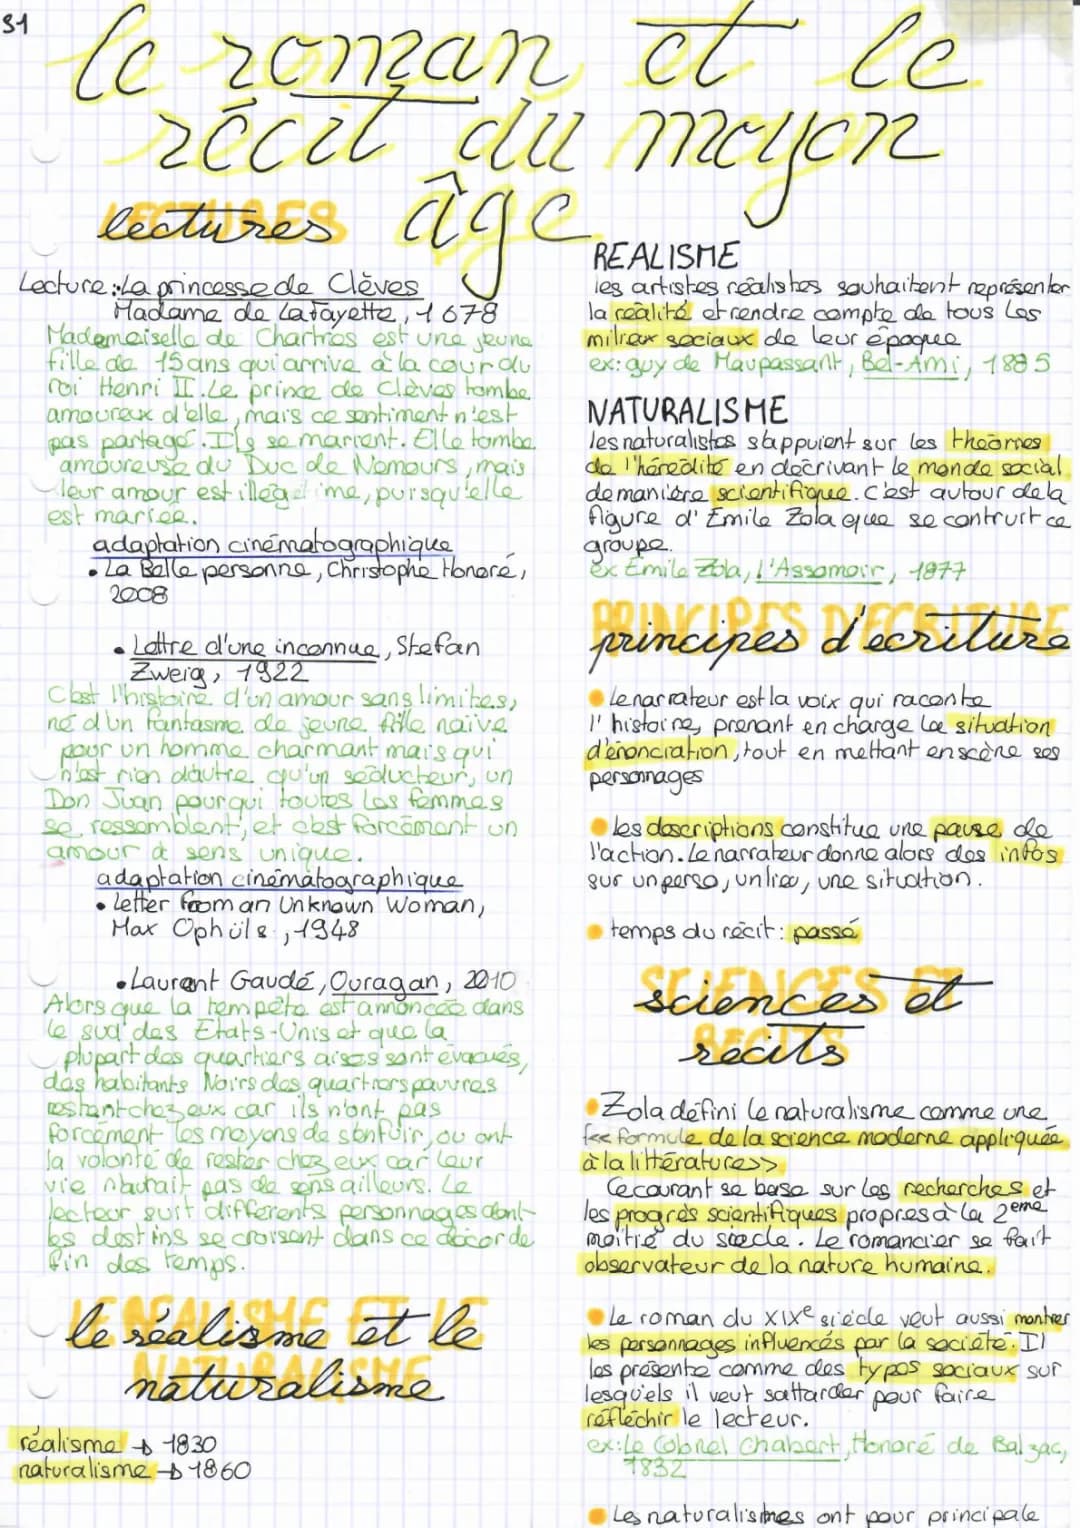 S1
le roman et le
récit du moyen
âge
LECTURES
lectures
Lecture : La princesse de Clèves
Madame de Lafayette, 1678
Mademoiselle de Chartres est une jeune
fille de 15 ans qui arrive à la cour du
roi Henri II. Le prince de Clèves tombe
amoureux d'elle, mais ce sentiment n'est
pas partagé. Ils se marient. Elle tombe
amoureuse du Duc de Nemours, mais
leur amour est illégitime, puisqu'elle
est mariée.
adaptation cinématographique
• La Belle personne, Christophe Honoré,
2008
• Lettre d'une inconnue, Stefan
Zweig, 1922
C'est l'histoire d'un amour sans limites,
né d'un fantasme de jeune fille naïve
pour un homme charmant mais qui
n'est rien d'autre qu'un séducteur, un
Don Juan pour qui toutes les femmes
se ressemblent, et c'est forcément un
amour à sens unique.
adaptation cinématographique
• Letter from an Unknown Woman,
Max Ophüls, 1948
• Laurent Gaudé, Ouragan, 2010
Alors que la tempête est annoncée dans
le sud des Etats-Unis et que la
plupart des quartiers aisés sont évacués,
des habitants Noirs des quartiers pauvres
restent chez eux car ils n'ont pas
forcément les moyens de s'enfuir, ou ont
la volonté de rester chez eux car leur
vie n'aurait pas de sens ailleurs. Le
lecteur suit différents personnages dont
les destins se croisent dans ce décor de
fin des temps.
LE REALISME ET LE
NATURALISME
le réalisme et le
naturalisme
réalisme → 1830
naturalisme → 1860
REALISME
les artistes réalistes souhaitent représenter
la réalité et rendre compte de tous les
milieux sociaux de leur époque
ex: guy de Maupassant, Bel-Ami, 1885
NATURALISME
les naturalistes s'appuient sur les théories
de l'hérédité en décrivant le monde social
de manière scientifique. C'est autour de la
figure d'Émile Zola que se contruit ce
groupe.
ex Emile Zola, L'Assomoir, 1877
PRINCIPES D'ECRITURE
principes d'ecriture
• Le narrateur est la voix qui raconte
l'histoire, prenant en charge la situation
d'énonciation, tout en mettant en scène ses
personnages
• les descriptions constitue une pause de
l'action. Le narrateur donne alors des infos
sur un perso, un lieu, une situation.
• temps du récit : passé
SCIENCES ET
RECITS
sciences et
récits
• Zola défini le naturalisme comme une
<< formule de la science moderne appliquée
à la littérature>>
Ce courant se base sur les recherches et
les progrès scientifiques propres à la 2eme
moitié du siècle. Le romancier se fait
observateur de la nature humaine.
• Le roman du XIXe siècle veut aussi montrer
les personnages influencés par la société. Il
les présente comme des types sociaux sur
lesquels il veut sattarder pour faire
réfléchir le lecteur.
ex: Le Colonel Chabert, Honoré de Balzac,
1832
• Les naturalismes ont pour principale